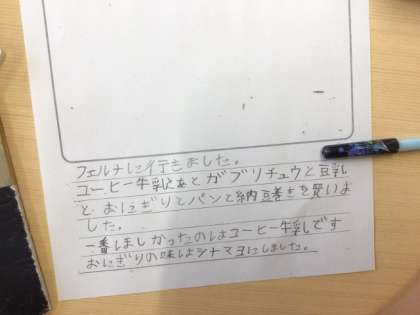 フェルナに行きました。
コーヒー牛乳とあとガブリチュウと豆乳
とおにぎりとパンと納豆巻きを買いま
した。
一番ほしかったのはコーヒー牛乳です
おにぎりの味はシナマヨにしました。